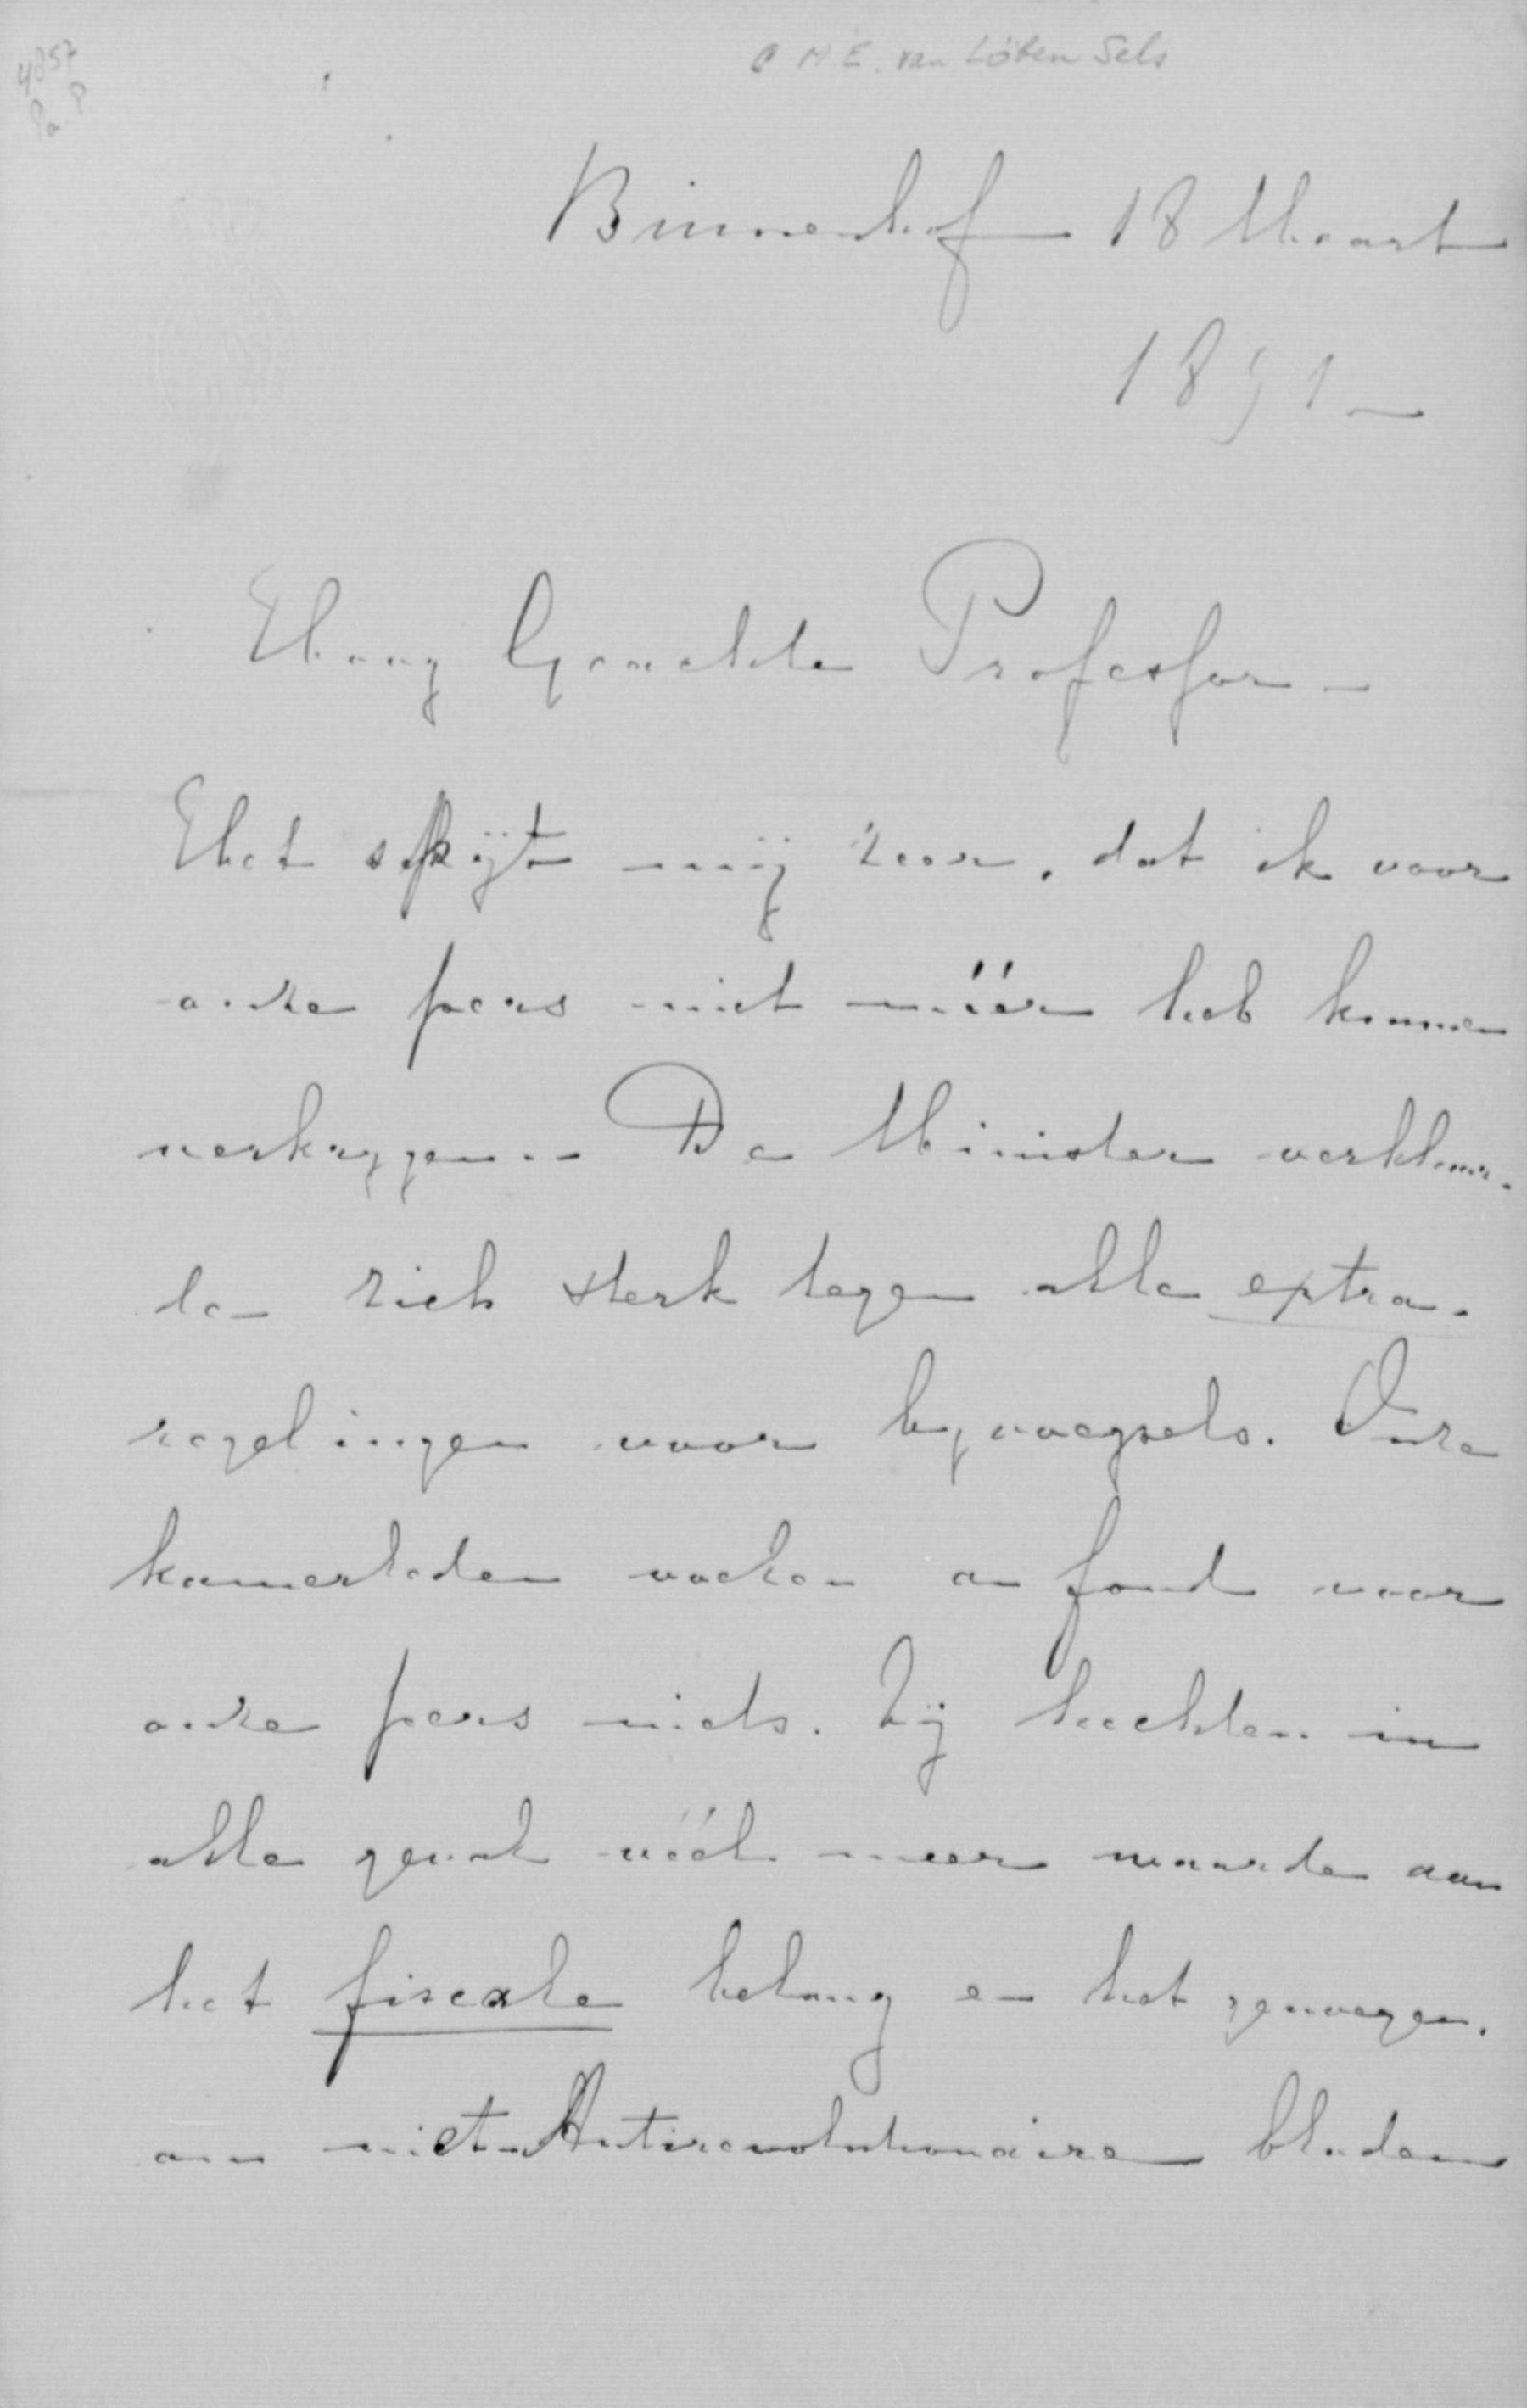 4857
Pa P
M.E. van Löben Sels
Binnenhof 18 Maart
1891 _
Hoog Geachte Professor _
Het spijt mij zeer, dat ik voor
onze pers niet méér heb kunnen
verkrygen. _ De Minister verklaar-
de zich sterk tegen alle extra-
regelingen voor byvoegsels. Onze
kamerleden voelen au fond voor
onze pers niets. Zij hechten in
elk geval méér waarde aan
het fiscale belang en het genoegen,
om niet-Antirevolutionaire bladen